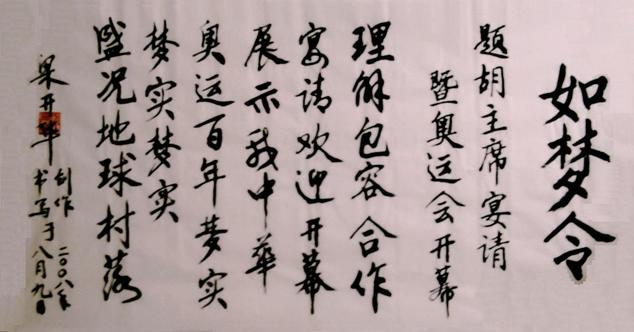 如梦令
题胡主席宴请
暨奥运会开幕
理解包容合作
宴请欢迎开幕
展示我中华
奥运百年梦实
梦实梦实
盛况地球村落
梁开华
创作二〇〇八年
书写于八月九日